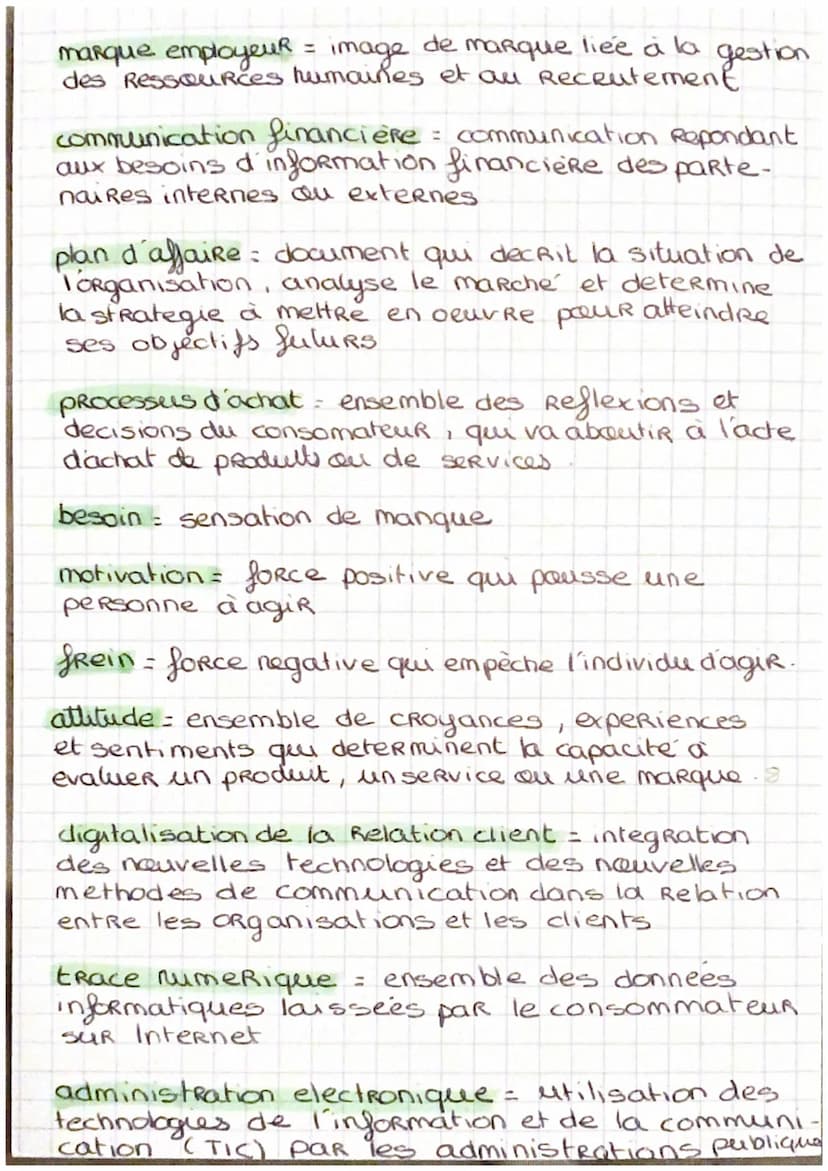 marque employeur = image de marque liée à la gestion
des Ressources humaines et au Recrutement
communication financière = communication Repondant
aux besoins d'information financière des parte-
naires internes ou externes
plan d'affaire = document qui decrit la situation de
l'organisation, analyse le marché et determine
la strategie à mettre en oeuvre pour atteindre
ses objectifs futurs
processus d'achat = ensemble des Reflexions et
decisions du consomateur, qui va aboutir à l'acte
d'achat de produits ou de services.
besoin = sensation de manque
motivation = force positive qui pousse une
personne à agir
frein = force negative qui empèche l'individu d'agir.
attitude = ensemble de croyances, experiences
et sentiments qui determinent la capacité à
evaluer un produit, un service ou une marque.
digitalisation de la Relation client = integration
des nouvelles technologies et des nouvelles
methodes de communication dans la Relation
entre les organisations et les clients
trace numerique = ensemble des données
informatiques laissées par le consommateur
sur Internet
administration electronique = utilisation des
technologies de l'information et de la communi-
cation (TIC) par les administrations publique